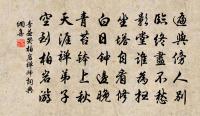 遍與傍人別
臨終盡不愁
影堂誰為掃
坐塔自看修
白日鐘邊晚
青苔鉢上秋
天涯禪弟子
空到柏岩遊
李益哭柏岩禪師詞典
網